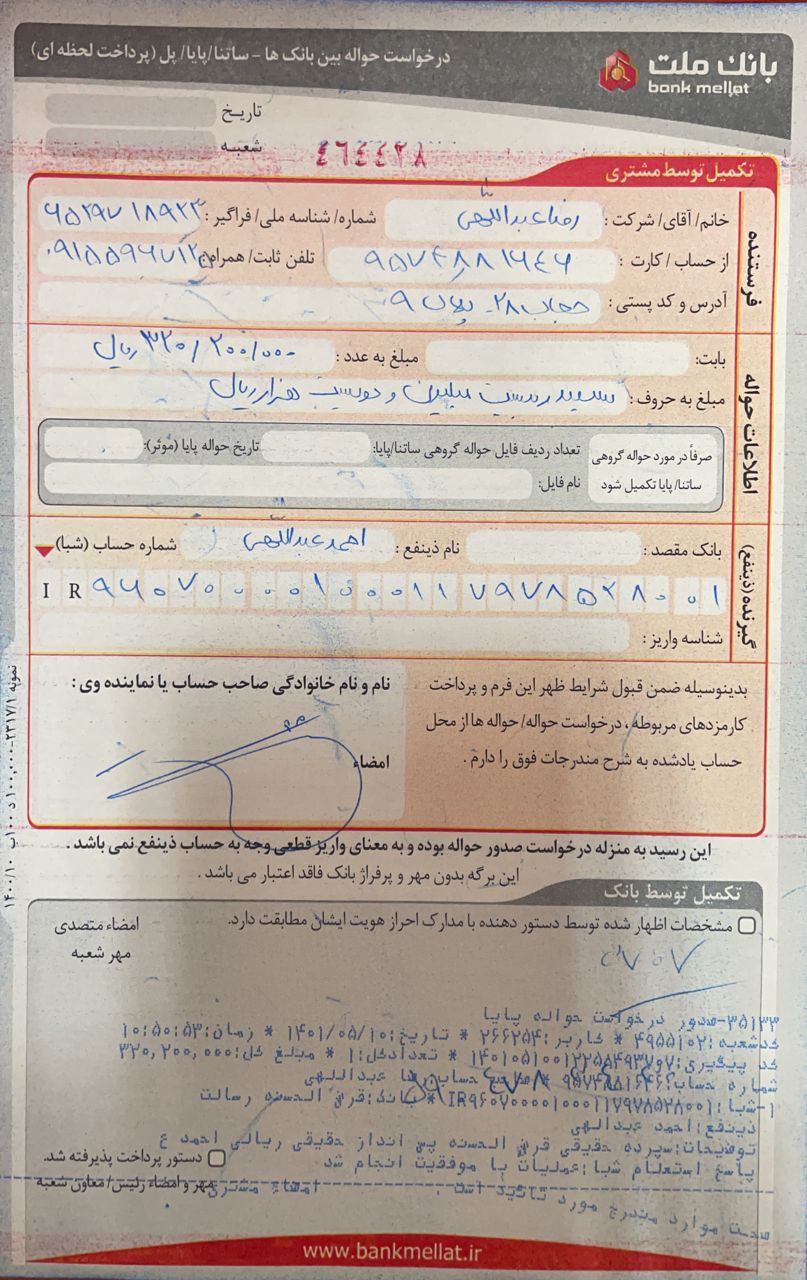 بانک ملت
bank mellat
درخواست حواله بین بانک ها - ساتنا/پایا/ پل (پرداخت لحظه ای)
تاریخ
شعبه
٤٦٤٤٢٨
تکمیل توسط مشتری
فرستنده
خانم/ آقای/ شرکت : رضا عبداللهی شماره/ شناسه ملی/ فراگیر :
از حساب/ کارت : ۹۵۷۴۸۸۱۶۴۶ تلفن ثابت/ همراه:
آدرس و کد پستی : حجاب ۲۸ - ۹
اطلاعات حواله
بابت: مبلغ به عدد : ۳۲۰/۲۰۰/۰۰۰ ریال
مبلغ به حروف : سیصد و بیست میلیون و دویست هزار ریال
صرفاً در مورد حواله گروهی ساتنا/ پایا تکمیل شود
تعداد ردیف فایل حواله گروهی ساتنا/پایا: تاریخ حواله پایا (موثر):
نام فایل:
گیرنده (ذینفع)
بانک مقصد : نام ذینفع : احمد عبداللهی شماره حساب (شبا)
IR ۹۶۰۷۰۰۰۰۱۰۰۰۱۱۷۹۷۸۵۲۸۰۰۱
شناسه واریز :
بدینوسیله ضمن قبول شرایط ظهر این فرم و پرداخت
کارمزدهای مربوطه، درخواست حواله/ حواله ها از محل
حساب یادشده به شرح مندرجات فوق را دارم .
نام و نام خانوادگی صاحب حساب یا نماینده وی :
امضاء
نمونه ۲۳۱۷/۱-۱۰۰,۰۰۰ د ۱۰۰ب ۱۴۰۰/۱۰
این رسید به منزله درخواست صدور حواله بوده و به معنای واریز قطعی وجه به حساب ذینفع نمی باشد .
این برگه بدون مهر و پرفراژ بانک فاقد اعتبار می باشد .
تکمیل توسط بانک
مشخصات اظهار شده توسط دستور دهنده با مدارک احراز هویت ایشان مطابقت دارد.
امضاء متصدی
مهر شعبه
۳۵۱۳۳-صدور درخواست حواله پایا
کدشعبه:۴۹۵۵۱۰۲ * کاربر:۲۶۶۲۵۴ * تاریخ:۱۴۰۱/۰۵/۱۰ * زمان:۱۰:۵۰:۵۳
کد پیگیری:۱۴۰۱۰۵۱۰۰۱۲۲۵۸۴۹۳۷۰۷ * تعدادکل:۱ * مبلغ کل:۳۲۰,۲۰۰,۰۰۰
شماره حساب:۹۵۷۴۸۸۱۶۴۶ * صاحب حساب:رضا عبداللهی
۱-شبا:IR۹۶۰۷۰۰۰۰۱۰۰۰۱۱۷۹۷۸۵۲۸۰۰۱ * بانک:قرض الحسنه رسالت
ذینفع:احمد عبدالهی
توضیحات:سپرده حقیقی قرض الحسنه پس انداز حقیقی ریالی احمد ع
پاسخ استعلام شبا:عملیات با موفقیت انجام شد
دستور پرداخت پذیرفته شد.
مهر و امضاء رئیس/ معاون شعبه
صحت موارد مندرج مورد تائید است . امضاء مشتری
www.bankmellat.ir